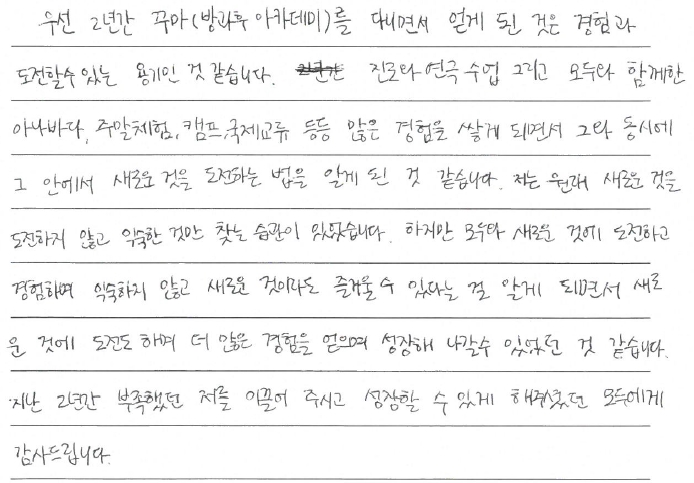 우선 2년간 꾸마(방과후 아카데미)를 다니면서 얻게 된 것은 경험과
도전할수 있는 용기인 것 같습니다. 진로와 연극 수업 그리고 모두와 함께한
아나바다, 주말체험, 캠프, 국제교류 등등 많은 경험을 쌓게 되면서 그와 동시에
그 안에서 새로운 것을 도전하는 법을 알게 된 것 같습니다. 저는 원래 새로운 것을
도전하지 않고 익숙한 것만 찾는 습관이 있었습니다. 하지만 모두와 새로운 것에 도전하고
경험하며 익숙하지 않고 새로운 것이라도 즐거울 수 있다는 걸 알게 되면서 새로
운 것에 도전도 하며 더 많은 경험을 얻으며 성장해 나갈수 있었던 것 같습니다.
지난 2년간 부족했던 저를 이끌어 주시고 성장할 수 있게 해주셨던 모두에게
감사드립니다.